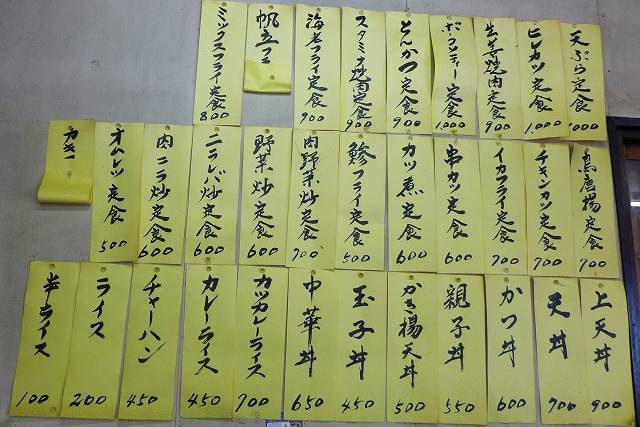 天ぷら定食 1000
ヒレカツ定食 1,000
生姜焼肉定食 900
ポークソティー定食 1000
とんかつ定食 900
スタミナ焼肉定食 900
海老フライ定食 900
帆立フ
ミックスフライ定食 800
鳥唐揚定食 700
チキンカツ定食 700
イカフライ定食 700
串カツ定食 600
カツ煮定食 600
鯵フライ定食 500
肉野菜炒定食 700
野菜炒定食 600
ニラレバ炒定食 600
肉ニラ炒定食 600
オムレツ定食 500
カキ
上天丼 900
天丼 700
かつ丼 600
親子丼 550
かき揚天丼 500
玉子丼 450
中華丼 650
カツカレーライス 700
カレーライス 450
チャーハン 450
ライス 200
半ライス 100